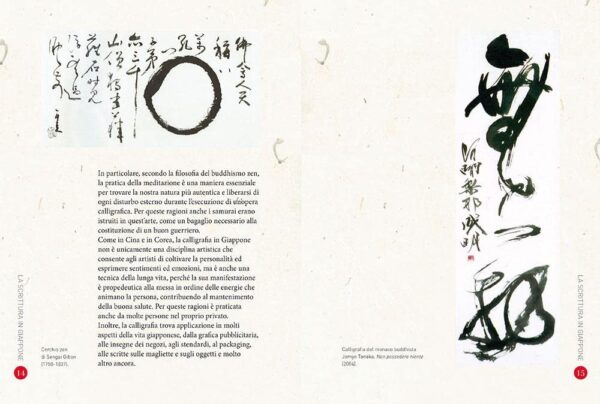 In particolare, secondo la filosofia del buddhismo zen,
la pratica della meditazione è una maniera essenziale
per trovare la nostra natura più autentica e liberarsi di
ogni disturbo esterno durante l'esecuzione di un'opera
calligrafica. Per queste ragioni anche i samurai erano
istruiti in quest'arte, come un bagaglio necessario alla
costituzione di un buon guerriero.
Come in Cina e in Corea, la calligrafia in Giappone
non è unicamente una disciplina artistica che
consente agli artisti di coltivare la personalità ed
esprimere sentimenti ed emozioni, ma è anche una
tecnica della lunga vita, perché la sua manifestazione
è propedeutica alla messa in ordine delle energie che
animano la persona, contribuendo al mantenimento
della buona salute. Per queste ragioni è praticata
anche da molte persone nel proprio privato.
Inoltre, la calligrafia trova applicazione in molti
aspetti della vita giapponese, dalla grafica pubblicitaria,
alle insegne dei negozi, agli stendardi, al packaging,
alle scritte sulle magliette e sugli oggetti e molto
altro ancora.
Cerchio zen
di Sengai Gibon
(1750-1837).
LA SCRITTURA IN GIAPPONE
14
無一物
Calligrafia del monaco buddhista
Jomyo Tanaka, Non possedere niente
(2004).
LA SCRITTURA IN GIAPPONE
15